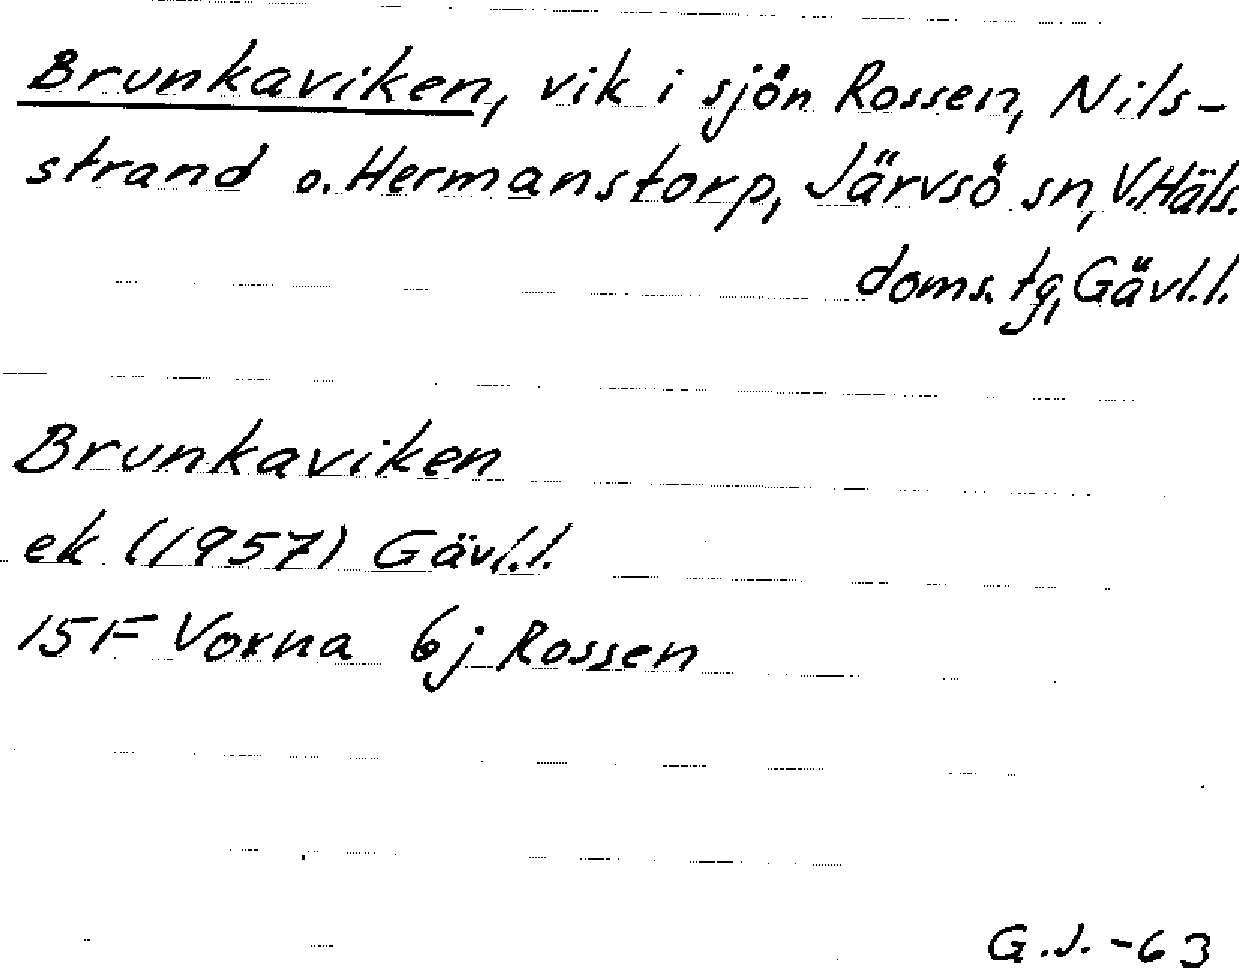 Brunkaviken, vik i sjön Rossen, Nils-
strand o. Hermanstorp, Järvsö sn, V. Häls.
doms. tg, Gävl.l.
Brunkaviken
ek (1957) Gävl.l.
15F Vorna 6j Rossen
G.J. -63